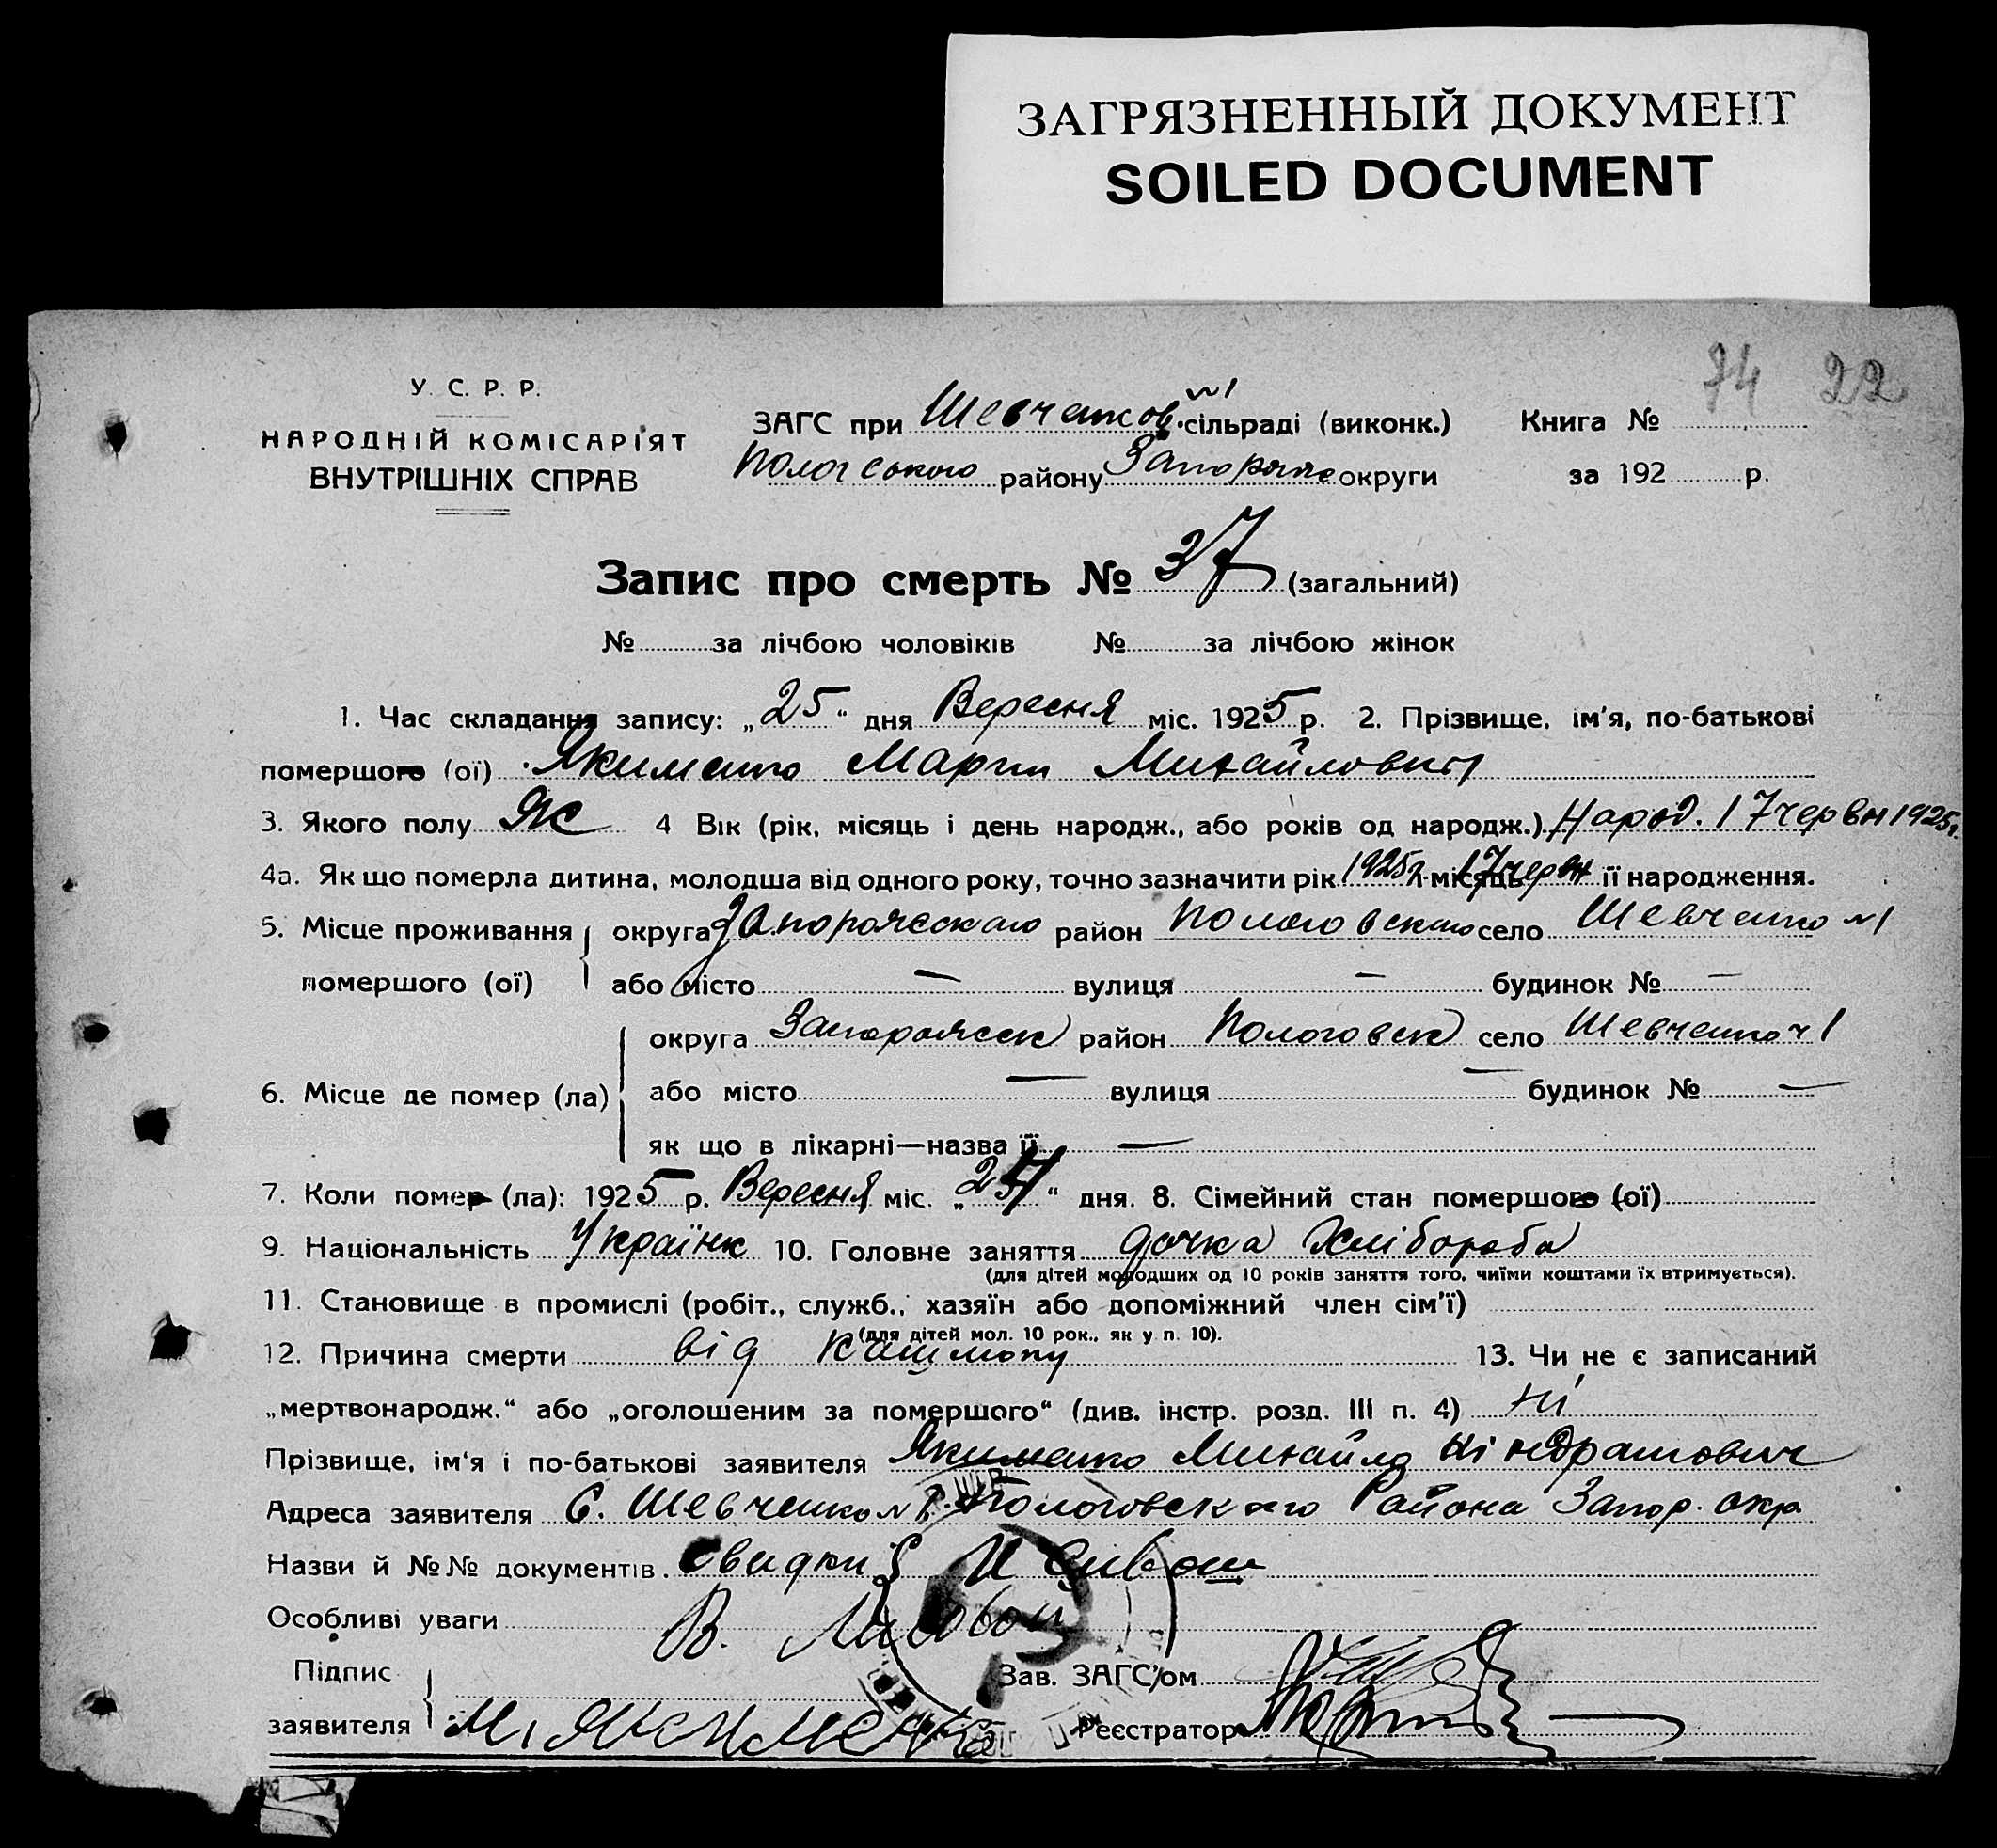 ЗАГРЯЗНЕННЫЙ ДОКУМЕНТ
SOILED DOCUMENT
74 22
У. С. Р. Р.
НАРОДНІЙ КОМІСАРІЯТ
ВНУТРІШНІХ СПРАВ
ЗАГС при Шевченков. №1 сільраді (виконк.) Книга №
Пологського району Запоріж округи за 192 р.
Запис про смерть № 37 (загальний)
№ за лічбою чоловіків № за лічбою жінок
1. Час складання запису: „25“ дня Вересня міс. 1925 р. 2. Прізвище, ім'я, по-батькові
помершого (ої) Якименко Марии Михайловны
3. Якого полу Ж 4 Вік (рік, місяць і день народж., або років од народж.) Народ. 17 червн 1925г.
4а. Як що померла дитина, молодша від одного року, точно зазначити рік 1925 г. місяць 17 червн її народження.
5. Місце проживання округа Запорожского район Пологовского село Шевченко №1
помершого (ої) або місто — вулиця — будинок № —
округа Запорожск район Пологовск село Шевченко №1
6. Місце де помер (ла) або місто — вулиця — будинок № —
як що в лікарні—назва її —
7. Коли помер (ла): 1925 р. Вересня міс. „24“ дня. 8. Сімейний стан помершого (ої)
9. Національність Українк 10. Головне заняття дочка Хлібороба
(для дітей молодших од 10 років заняття того, чиїми коштами їх втримується).
11. Становище в промислі (робіт., служб., хазяїн або допоміжний член сім'ї)
(для дітей мол. 10 рок., як у п. 10).
12. Причина смерти від кашлюку 13. Чи не є записаний
„мертвонародж.“ або „оголошеним за помершого“ (див. інстр. розд. III п. 4) Ні
Прізвище, ім'я і по-батькові заявителя Якименко Михайло Кіндратович
Адреса заявителя С. Шевченко №1. Пологовского Района Запор. окр.
Назви й №№ документів. Свидки И Сивош
Особливі уваги В.
Підпис Зав. ЗАГС'ом
заявителя М. Якименко Реєстратор